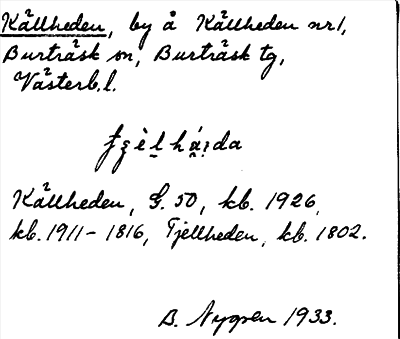 Källheden, by å Källheden nr 1,
Burträsk sn, Burträsk tg,
Västerb. l.
Källheden, G. 50, kb. 1926,
kb. 1911-1816, Tjellheden, kb. 1802.
B. Nygren 1933.